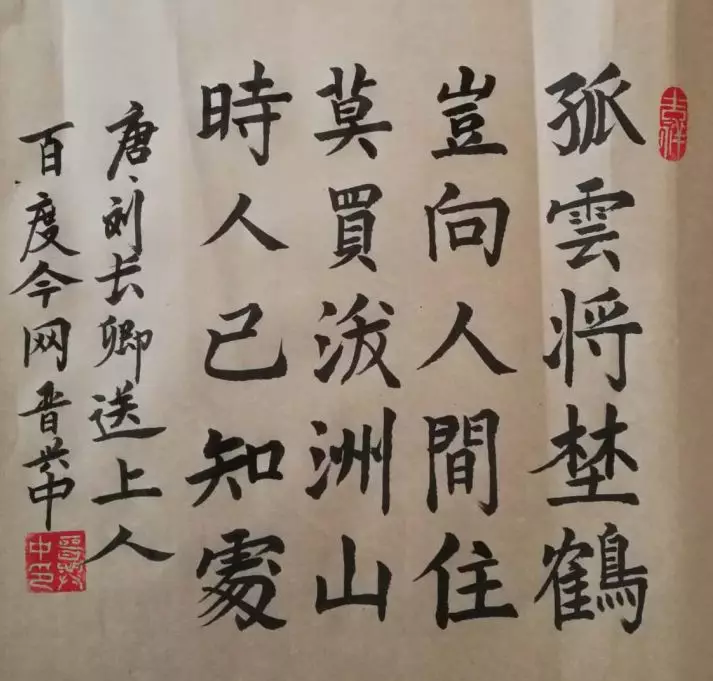 吉祥
孤雲将埜鶴
豈向人間住
莫買沷洲山
時人已知處
唐、刘长卿送上人
百度今网晋兴中
晋兴中印